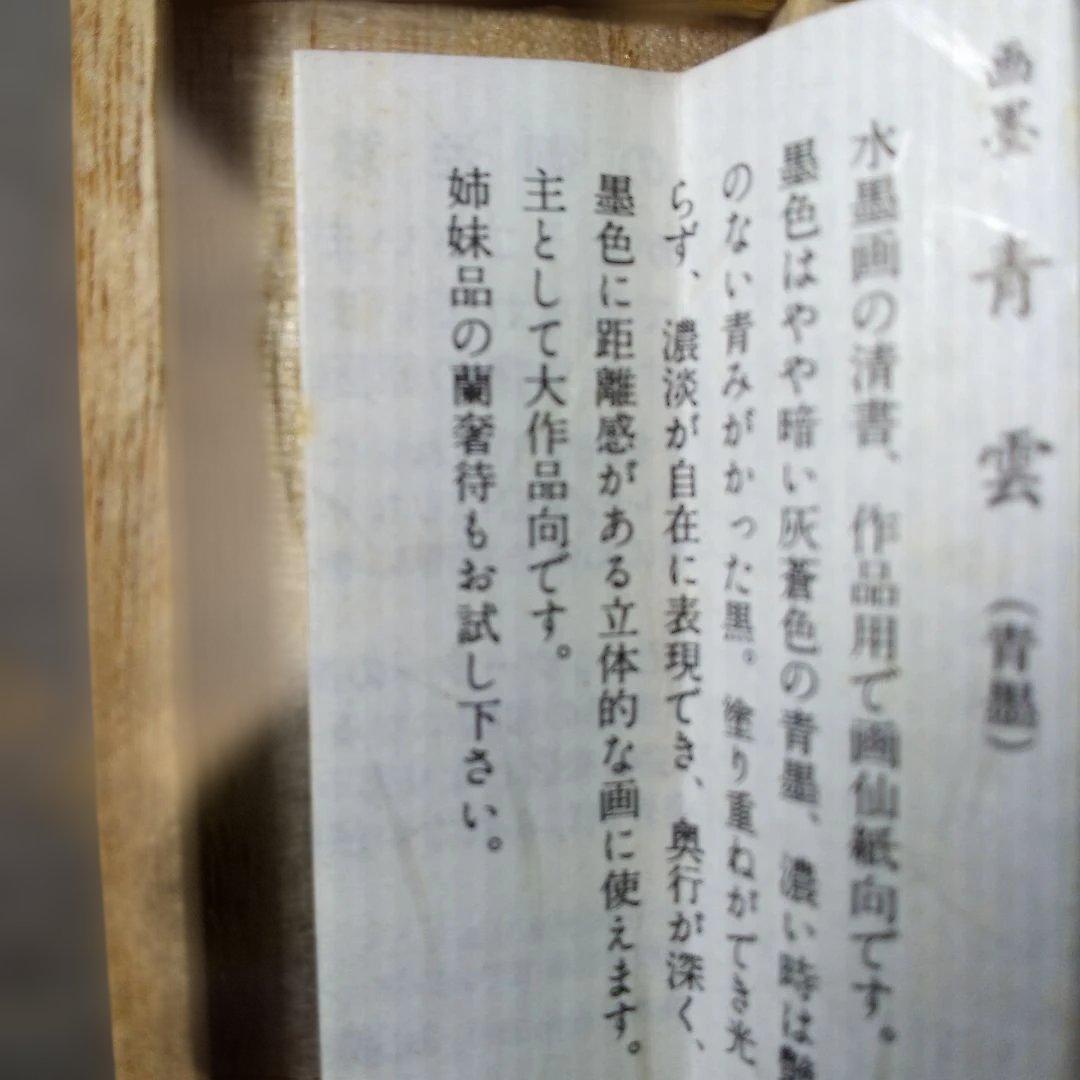 画墨 青雲（青墨）
水墨画の清書、作品用で画仙紙向です。
墨色はやや暗い灰蒼色の青墨、濃い時は艶
のない青みがかった黒。塗り重ねができ光
らず、濃淡が自在に表現でき、奥行が深く、
墨色に距離感がある立体的な画に使えます。
主として大作品向です。
姉妹品の蘭奢待もお試し下さい。